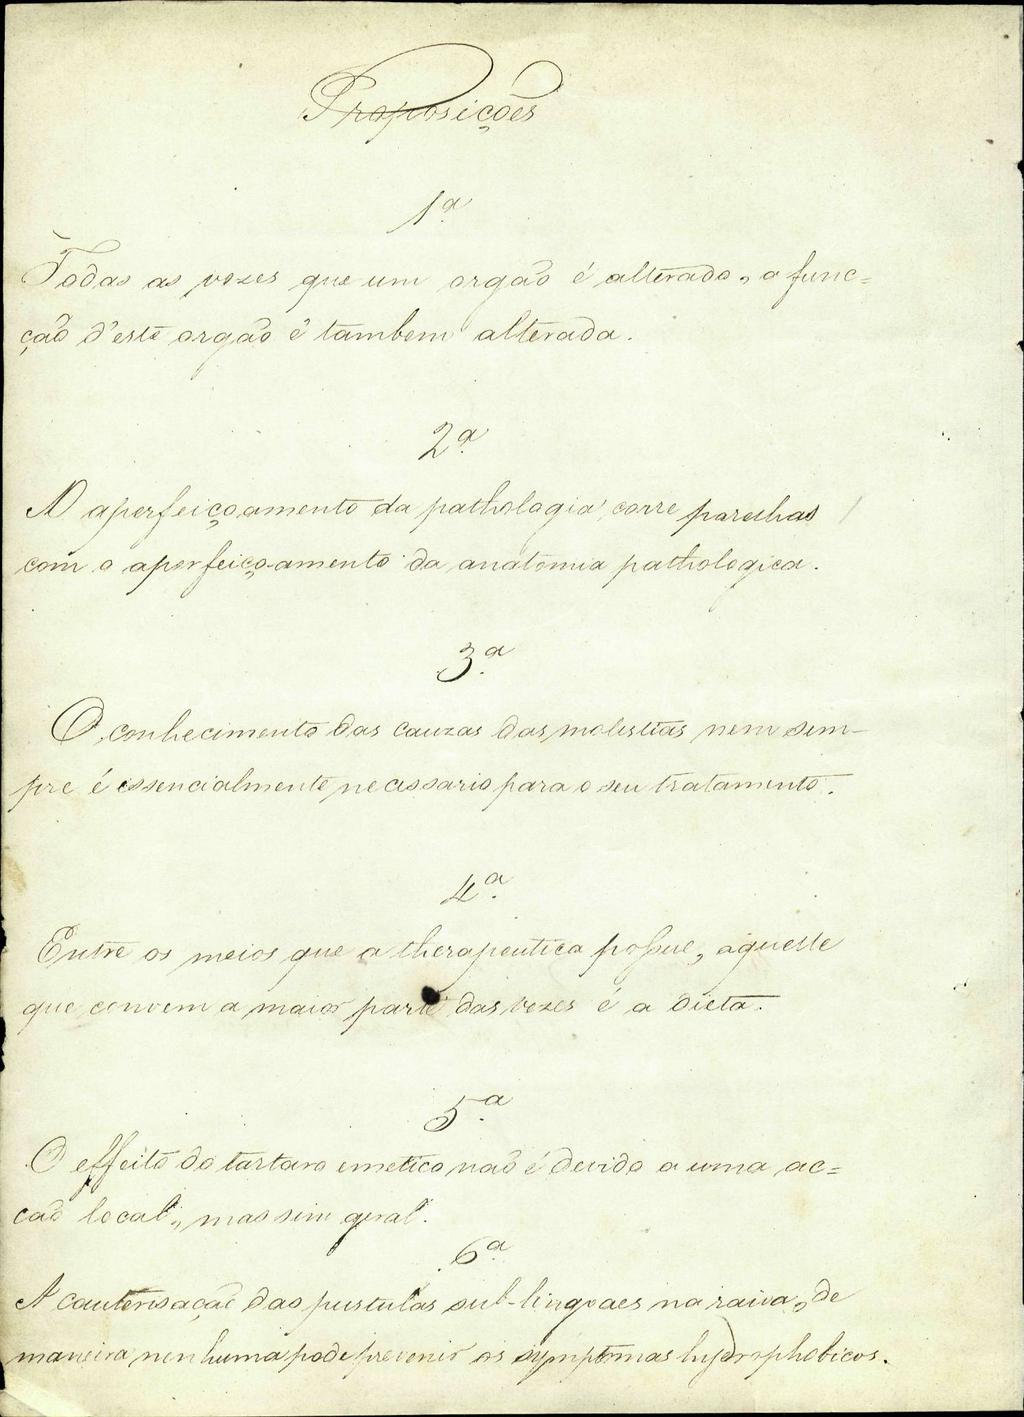 Proposições
1ª
Todas as vezes que um orgaõ é alterado, a func=
çaõ d'este orgaõ é tambem alterada.
2ª
O aperfeiçoamento da pathologia corre parelhas
com o aperfeiçoamento da anatomia pathologica.
3ª
O conhecimento das cauzas das molestias nem sem-
pre é essencialmente necessario para o seu tratamento.
4ª
Entre os meios que a therapeutica possue, aquelle
que convem a maior parte das vezes é a dieta.
5ª
O effeito do tartaro emetico naõ é devido a uma ac=
caõ local, mas sim geral.
6ª
A cauterisaçaõ das pustulas sub-lingoaes na raiva, de
maneira nenhuma pode prevenir os symptomas hydrophobicos.